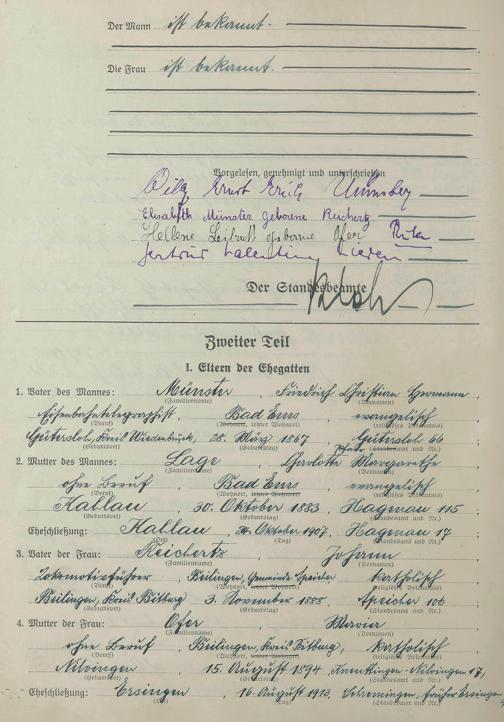 Der Mann ist bekannt.
Die Frau ist bekannt.
Vorgelesen, genehmigt und unterschrieben
Willy Ernst Erich Münster
Elisabeth Münster geborene Reichertz
Hellene geborene Ofer
Valentin
Der Standesbeamte
Zweiter Teil
I. Eltern der Ehegatten
1. Vater des Mannes: Münster, Friedrich Christian Hermann,
(Familienname) (Vornamen)
Eisenbahntelegraphist, Bad Ems, evangelisch
(Beruf) (Wohnort, letzter Wohnort) (religiöses Bekenntnis)
Gütersloh, Kreis Wiedenbrück, 28. März 1867, Gütersloh 66;
(Geburtsort) (Geburtstag) (Standesamt und Nr.)
2. Mutter des Mannes: Lage, Charlotte Margarethe
(Familienname) (Vornamen)
ohne Beruf, Bad Ems, evangelisch
(Beruf) (Wohnort, letzter Wohnort) (religiöses Bekenntnis)
30. Oktober 1883, Hagenau 115;
(Geburtsort) (Geburtstag) (Standesamt und Nr.)
Eheschließung: Oktober 1907, Hagenau 17;
(Ort) (Tag) (Standesamt und Nr.)
3. Vater der Frau: Reichertz, Johann
(Familienname) (Vornamen)
Lokomotivführer, Beilingen, Gemeinde Speicher, katholisch
(Beruf) (Wohnort, letzter Wohnort) (religiöses Bekenntnis)
Beilingen, Kreis Bitburg, 3. November 1888, Speicher 106;
(Geburtsort) (Geburtstag) (Standesamt und Nr.)
4. Mutter der Frau: Ofer, Maria
(Familienname) (Vornamen)
ohne Beruf, Beilingen, Kreis Bitburg, katholisch
(Beruf) (Wohnort, letzter Wohnort) (religiöses Bekenntnis)
Nilvingen, 15. August 1894, Kneuttingen-Nilvingen 17,
(Geburtsort) (Geburtstag) (Standesamt und Nr.)
Eheschließung: Ersingen, 16. August 1913, früher Ersingen